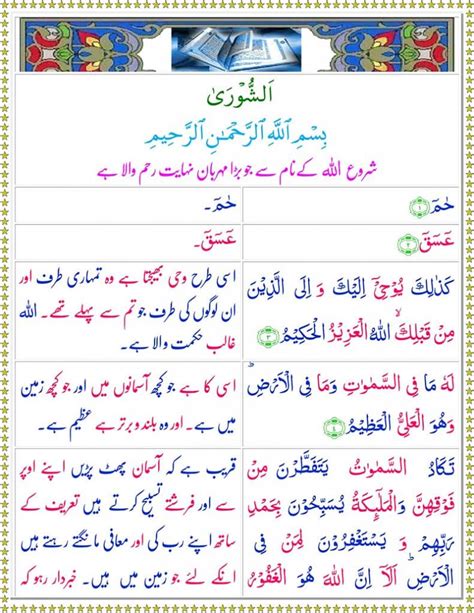 اَلشُّوْرٰى
بِسْمِ اللّٰهِ الرَّحْمٰنِ الرَّحِيْمِ
شروع اللہ کے نام سے جو بڑا مہربان نہایت رحم والا ہے
حٰمٓ ۚ‏﴿۱﴾
حٰمٓ۔
عٓسٓقٓ ‏﴿۲﴾
عٓسٓقٓ۔
كَذٰلِكَ يُوْحِىْۤ اِلَيْكَ وَ اِلَى الَّذِيْنَ
مِنْ قَبْلِكَ ۙ اللّٰهُ الْعَزِيْزُ الْحَكِيْمُ ﴿۳﴾
اسی طرح وحی بھیجتا ہے وہ تمہاری طرف اور
ان لوگوں کی طرف جو تم سے پہلے تھے۔ اللہ
غالب حکمت والا ہے۔
لَهٗ مَا فِى السَّمٰوٰتِ وَمَا فِى الْاَرْضِ‌ؕ
وَهُوَ الْعَلِىُّ الْعَظِيْمُ ﴿۴﴾
اسی کا ہے جو کچھ آسمانوں میں اور جو کچھ زمین
میں ہے۔ اور وہ بلند و برتر ہے عظیم ہے۔
تَكَادُ السَّمٰوٰتُ يَتَفَطَّرْنَ مِنْ
فَوْقِهِنَّ‌ وَالْمَلٰٓٮِٕكَةُ يُسَبِّحُوْنَ بِحَمْدِ
رَبِّهِمْ وَيَسْتَغْفِرُوْنَ لِمَنْ فِى
الْاَرْضِ‌ؕ اَلَاۤ اِنَّ اللّٰهَ هُوَ الْغَفُوْرُ
قریب ہے کہ آسمان پھٹ پڑیں اپنے اوپر
سے اور فرشتے تسبیح کرتے ہیں تعریف کے
ساتھ اپنے رب کی اور معافی مانگتے رہتے ہیں
انکے لئے جو زمین میں ہیں۔ خبردار رہو کہ